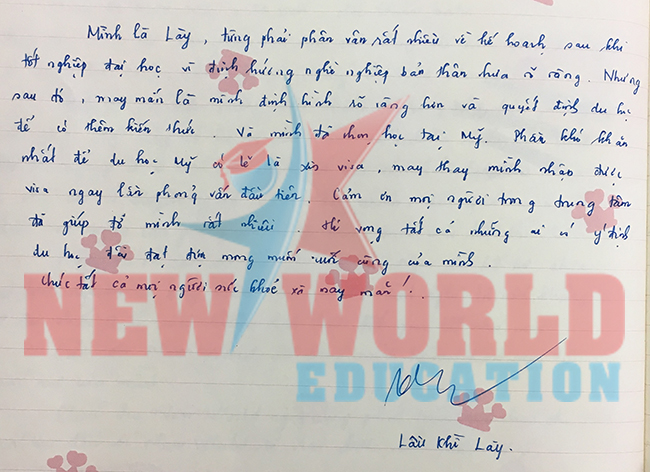 Mình là Lày, từng phải phân vân rất nhiều về kế hoạch sau khi
tốt nghiệp đại học vì định hướng nghề nghiệp bản thân chưa rõ ràng. Nhưng
sau đó, may mắn là mình định hình rõ ràng hơn và quyết định du học
để có thêm kiến thức. Và mình đã chọn học tại Mỹ. Phần khó khăn
nhất để du học Mỹ có lẽ là xin visa, may thay mình nhận được
visa ngay lần phỏng vấn đầu tiên. Cảm ơn mọi người trong trung tâm
đã giúp đỡ mình rất nhiều. Hi vọng tất cả những ai có ý định
du học đều đạt được mong muốn cuối cùng của mình.
Chúc tất cả mọi người sức khoẻ và may mắn!..
NEW WORLD
EDUCATION
Lầu Khì Lày.